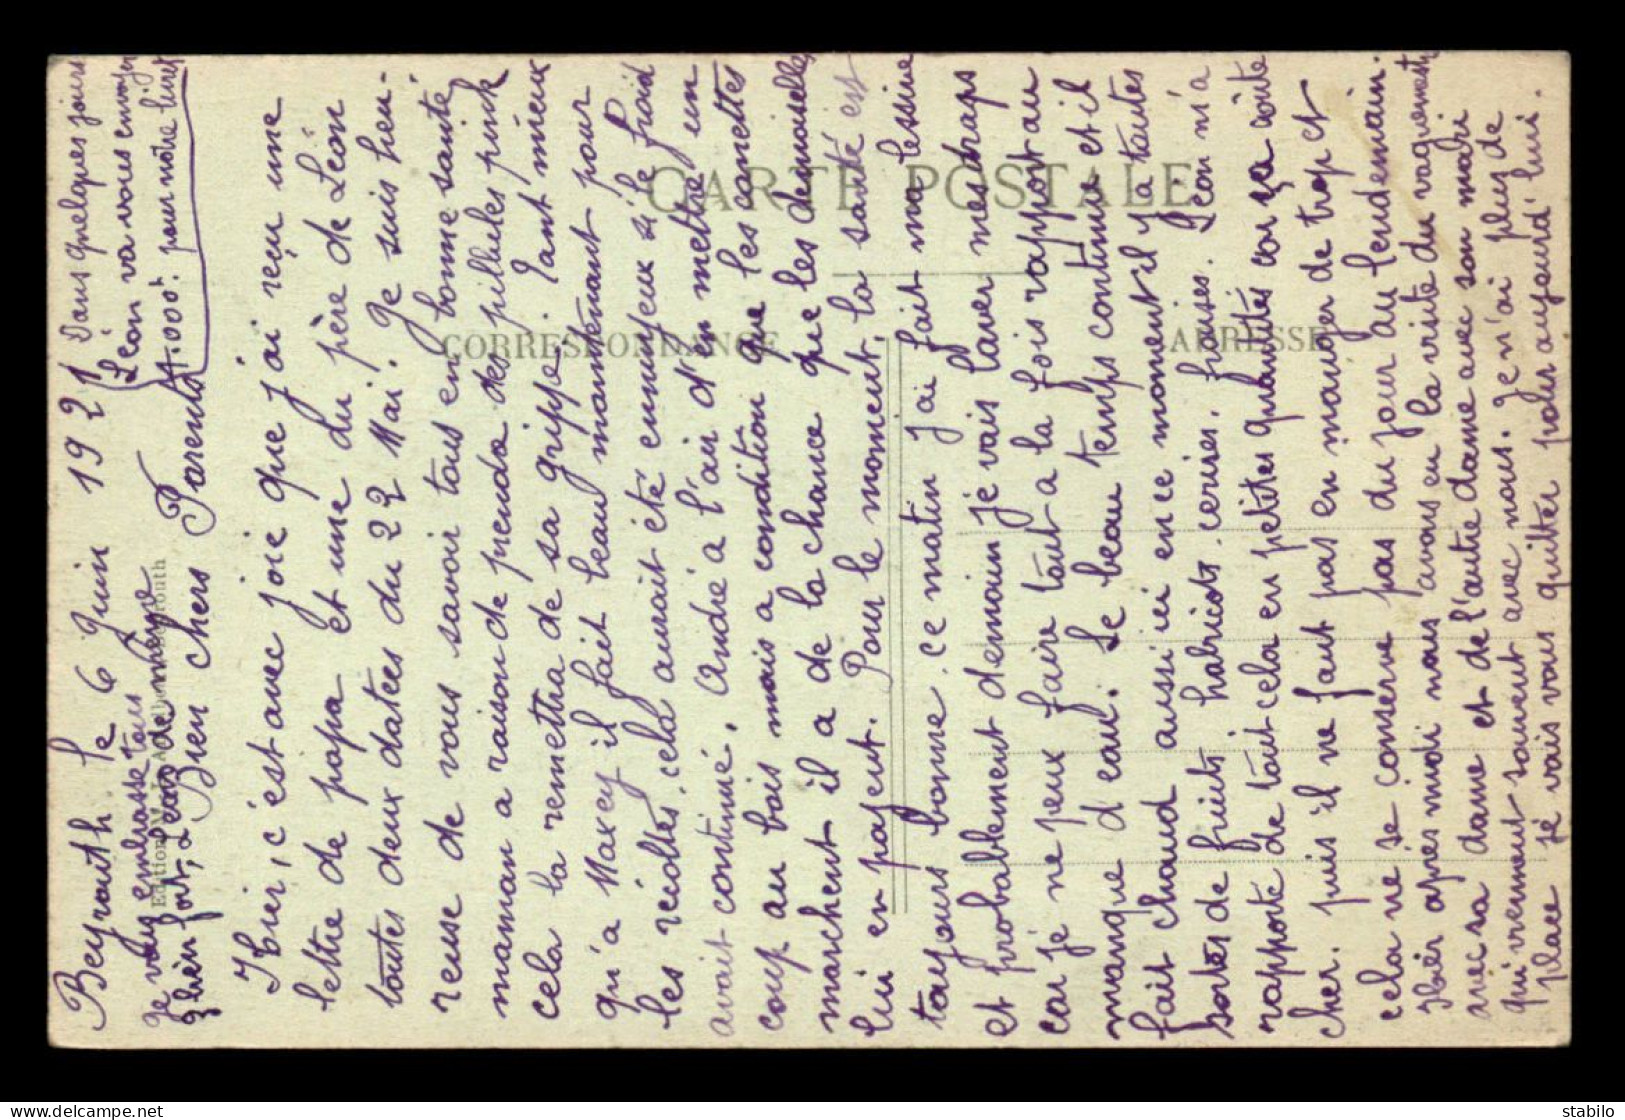 Beyrouth le 6 Juin 1921
Dans quelques jours
Léon va vous envoyer
4.000f. pour notre livret
je vous embrasse tous
bien fort, Léon de même
Bien chers Parents
Hier, c'est avec joie que j'ai reçu une
lettre de papa et une du père de Léon
toutes deux datées du 22 Mai. Je suis heu-
reuse de vous savoir tous en bonne santé,
maman a raison de prendre des pillules pink
cela la remettra de sa grippe. Tant mieux
qu'à Maxey il fait beau maintenant pour
les récoltes. cela aurait été ennuyeux si le froid
avait continué. André a l'air d'en mettre un
coup au bois mais a condition que les canettes
marchent il a de la chance que les demoiselles
lui en payent. Pour le moment, la santé est
toujours bonne. ce matin j'ai fait ma lessive
et probablement demain je vais laver mes draps
car je ne peux faire tout a la fois rapport au
manque d'eau. Le beau temps continue et il
fait chaud aussi ici en ce moment il y a toutes
sortes de fruits haricots. cerises. fraises. Léon m'a
rapporté de tout cela en petites quantités car ça coûte
cher. puis il ne faut pas en manger de trop et
cela ne se conserve pas du jour au lendemain.
Hier après midi nous avons eu la visite du vaguemestre
avec sa dame et de l'autre dame avec son mari
qui viennent souvent avec nous. Je n'ai plus de
place je vais vous quitter pour aujourd'hui.
CARTE POSTALE
CORRESPONDANCE
ADRESSE